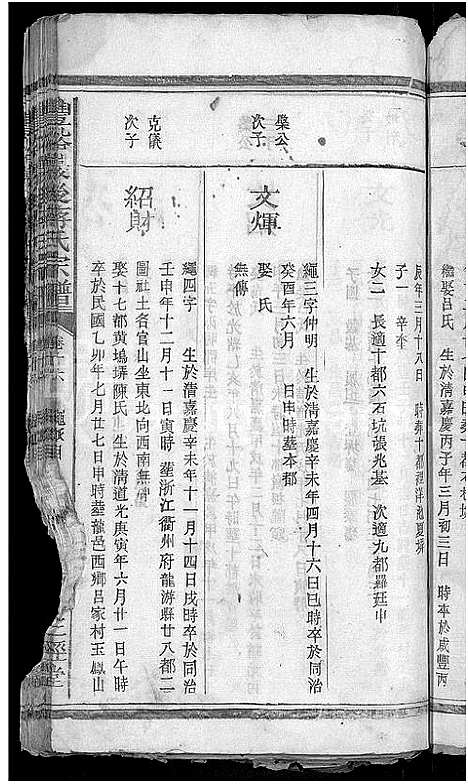 繼娶呂氏 生於清嘉慶丙子年三月初三日 時卒於咸豐丙
辰年三月十八日 時葬十都
子一 辛奎
女二 長適十都六石坑張兆基 次適九都羅廷中
榮公
次子
文煇
繩三字仲明 生於清嘉慶辛未年四月十六日巳時卒於同治
癸酉年六月 日申時葬本都
娶 氏
無傳
克儀
次子
紹財
繩四字 生於清嘉慶辛未年十一月十四日戌時卒於同治
壬申年十二月十一日寅時葬浙江衢州府龍游縣廿八都二
圖社土名官山坐東北向西南無碑
娶十七都黃塢塝陳氏 生於清道光庚寅年六月廿一日午時
卒於民國乙卯年七月廿七日申時葬龍邑西鄉呂家村玉鳳山
氏宗譜